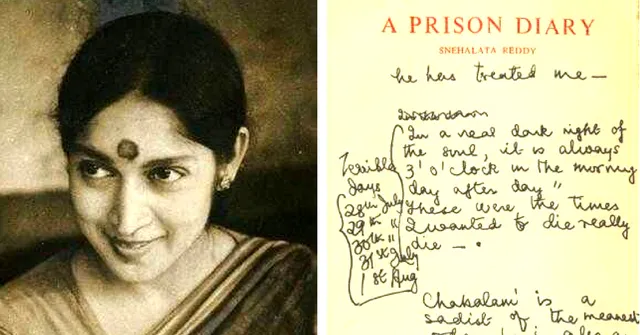 A PRISON DIARY
SNEHALATA REDDY
he has treated me —
In a real dark night of
the soul, it is always
3' o' clock in the morning
day after day"
These were the times
I wanted to die really
die — .
Terrible
days
28th July
29th "
30th "
31st July
1st Aug
Chakalam' is a
sadist of the meanest